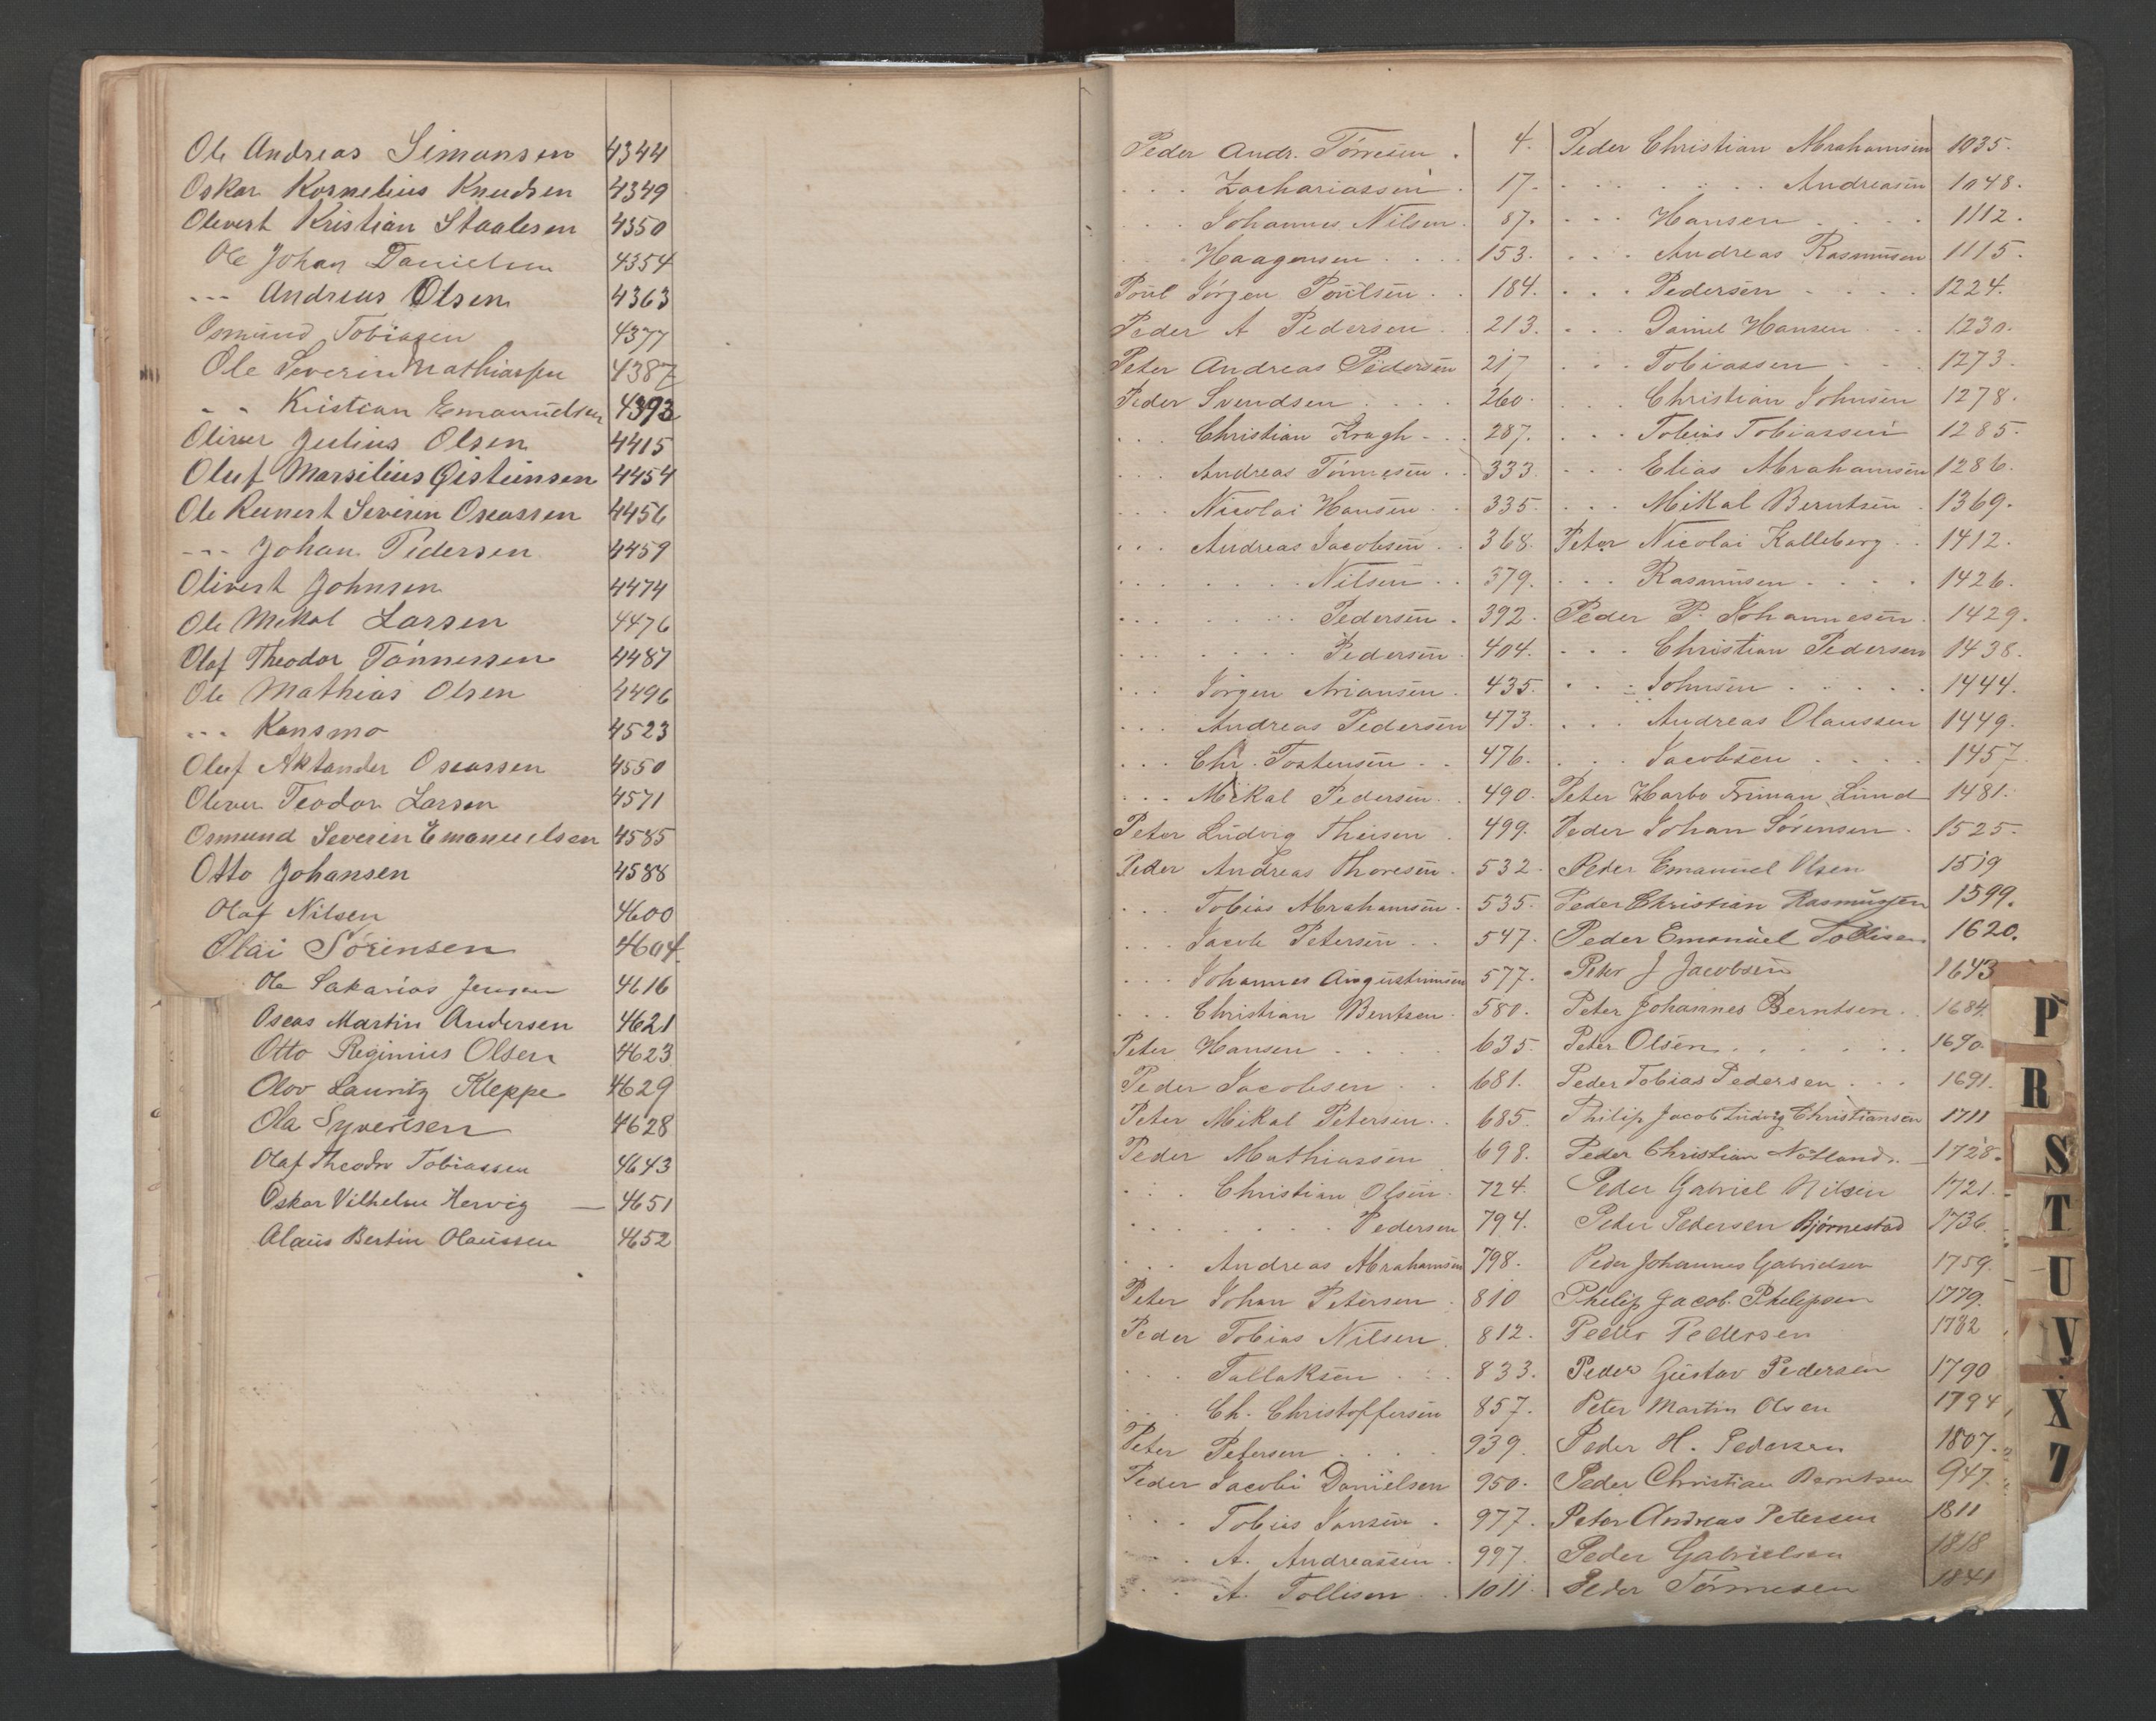 Ole Andreas Simonsen 4344
Oskar Kornelius Knudsen 4349
Olevert Kristian Staalesen 4350
Ole Johan Danielsen 4354
--- Andreas Olsen 4363
Osmund Tobiasen 4377
Ole Severin Mathiassen 4387
- - Kristian Emanuelsen 4393
Oliver Julius Olsen 4415
Oluf Marsilius Qisteinsen 4454
Ole Reinert Severin Oseassen 4456
--- Johan Pedersen 4459
Olivert Johnsen 4474
Ole Mekal Larsen 4476
Olaf Theodor Tönnessen 4487
Ole Mathias Olsen 4496
--- Konsmo 4523
Oluf Aktander Oseassen 4550
Oliver Teodor Larsen 4571
Osmund Severin Emanuelsen 4585
Otto Johansen 4588
Olaf Nilsen 4600
Olai Sörensen 4604
Ole Sakarias Jensen 4616
Oseas Martin Andersen 4621
Otto Reginius Olsen 4623
Olov Lauritz Kleppe 4629
Ola Syvertsen 4628
Olaf Theodor Tobiassen 4643
Oskar Vilhelm Hervig — 4651
Olaus Bertin Olaussen 4652
Peder Andr. Tönnesen . 4.
. . . Zachariassen . 17.
. . . Johannes Nilsen . 87.
. . . Haagensen . . . . 153.
Poul Jörgen Poulsen . . 184.
Peder A Pedersen . . 213.
Peter Andreas Pedersen 217
Peder Svendsen . . . . 260.
. . . Christian Krogh - . . 287.
. . . Andreas Tönnesen . . 333.
. . . Nicolai Hansen . . 335.
. . . Andreas Jacobsen . . 368.
. . . . . . . Nilsen . . 379.
. . . . . . . Pedersen . 392.
. . . . . . . Pedersen . 404.
. . . Jörgen Ariansen . 435.
. . . Andreas Pedersen 473.
. . . Chr. Tostensen . . 476.
. . . Mikal Pedersen . . 490.
Peter Ludvig Theisen . 499.
Peder Andreas Thoresen . 532.
. . . Tobias Abrahamsen . 535.
. . . Jacob Petersen . . 547.
. . . Johannes Augustinusen 577.
. . . Christian Bentsen . 580.
Peter Hansen . . . . 635.
Peder Jacobsen . . 681.
Peter Mikal Petersen . . 685.
Peder Mathiassen 698.
. . . Christian Olsen . 724.
. . . . . . . Pedersen 794.
. . . Andreas Abrahamsen 798.
Peter Johan Petersen . 810
Peder Tobias Nilsen . 812.
. . . Tallaksen . . . 833.
. . . Ch. Christoffersen 857.
Peter Petersen . . . . 939.
Peder Jacobi Danielsen 950.
. . . Tobias Jansen . 977.
. . . A. Andreassen . 997.
. . . A. Tollisen . . 1011.
Peder Christian Abrahamsen 1035.
. . . . . . . Andreasen 1048.
. . . Hansen . . . . 1112.
. . . Andreas Rasmusen 1115.
. . . Pedersen . . . . 1224.
. . . Daniel Hansen . . 1230.
. . . Tobiassen . . . 1273.
. . . Christian Johnsen 1278.
. . . Tobias Tobiassen 1285.
. . . Elias Abrahamsen 1286.
. . . Mikal Berntsen . 1369.
Peter Nicolai Kalleberg . . 1412.
. . . Rasmusen . . . . 1426.
Peder P. Johannesen . 1429.
. . . Christian Pedersen 1438.
. . . Johnsen . . . . . 1444.
. . . Andreas Olaussen 1449.
. . . Jacobsen . . . . 1457.
Peter Harbo Friman Lund 1481.
Peder Johan Sörensen . 1525.
Peder Emanuel Olsen 1519
Peder Christian Rasmussen 1599.
Peder Emanuel Tollisen 1620.
Peter J Jacobsen 1643
Peter Johannes Berntsen . . 1684.
Peter Olsen . . . . . . 1690.
Peder Tobias Pedersen . . . 1691.
Philip Jacob Ludvig Christiansen 1711
Peder Christian Nötland. — 1728.
Peder Gabriel Nilsen 1721.
Peder Pedersen Bjørnestad 1736.
Peder Johannes Gabrielsen 1759.
Philip Jacob Philipsen 1779.
Peder Pedersen 1782
Peder Gustav Pedersen 1790
Peter Martin Olsen 1794
Peder H. Pedersen 1807.
Peder Christian Berntsen 947.
Peter Andreas Petersen 1811
Peder Gabrielsen 1818
Peder Tönnesen 1841
P
R
S
T
U
V
X
Z